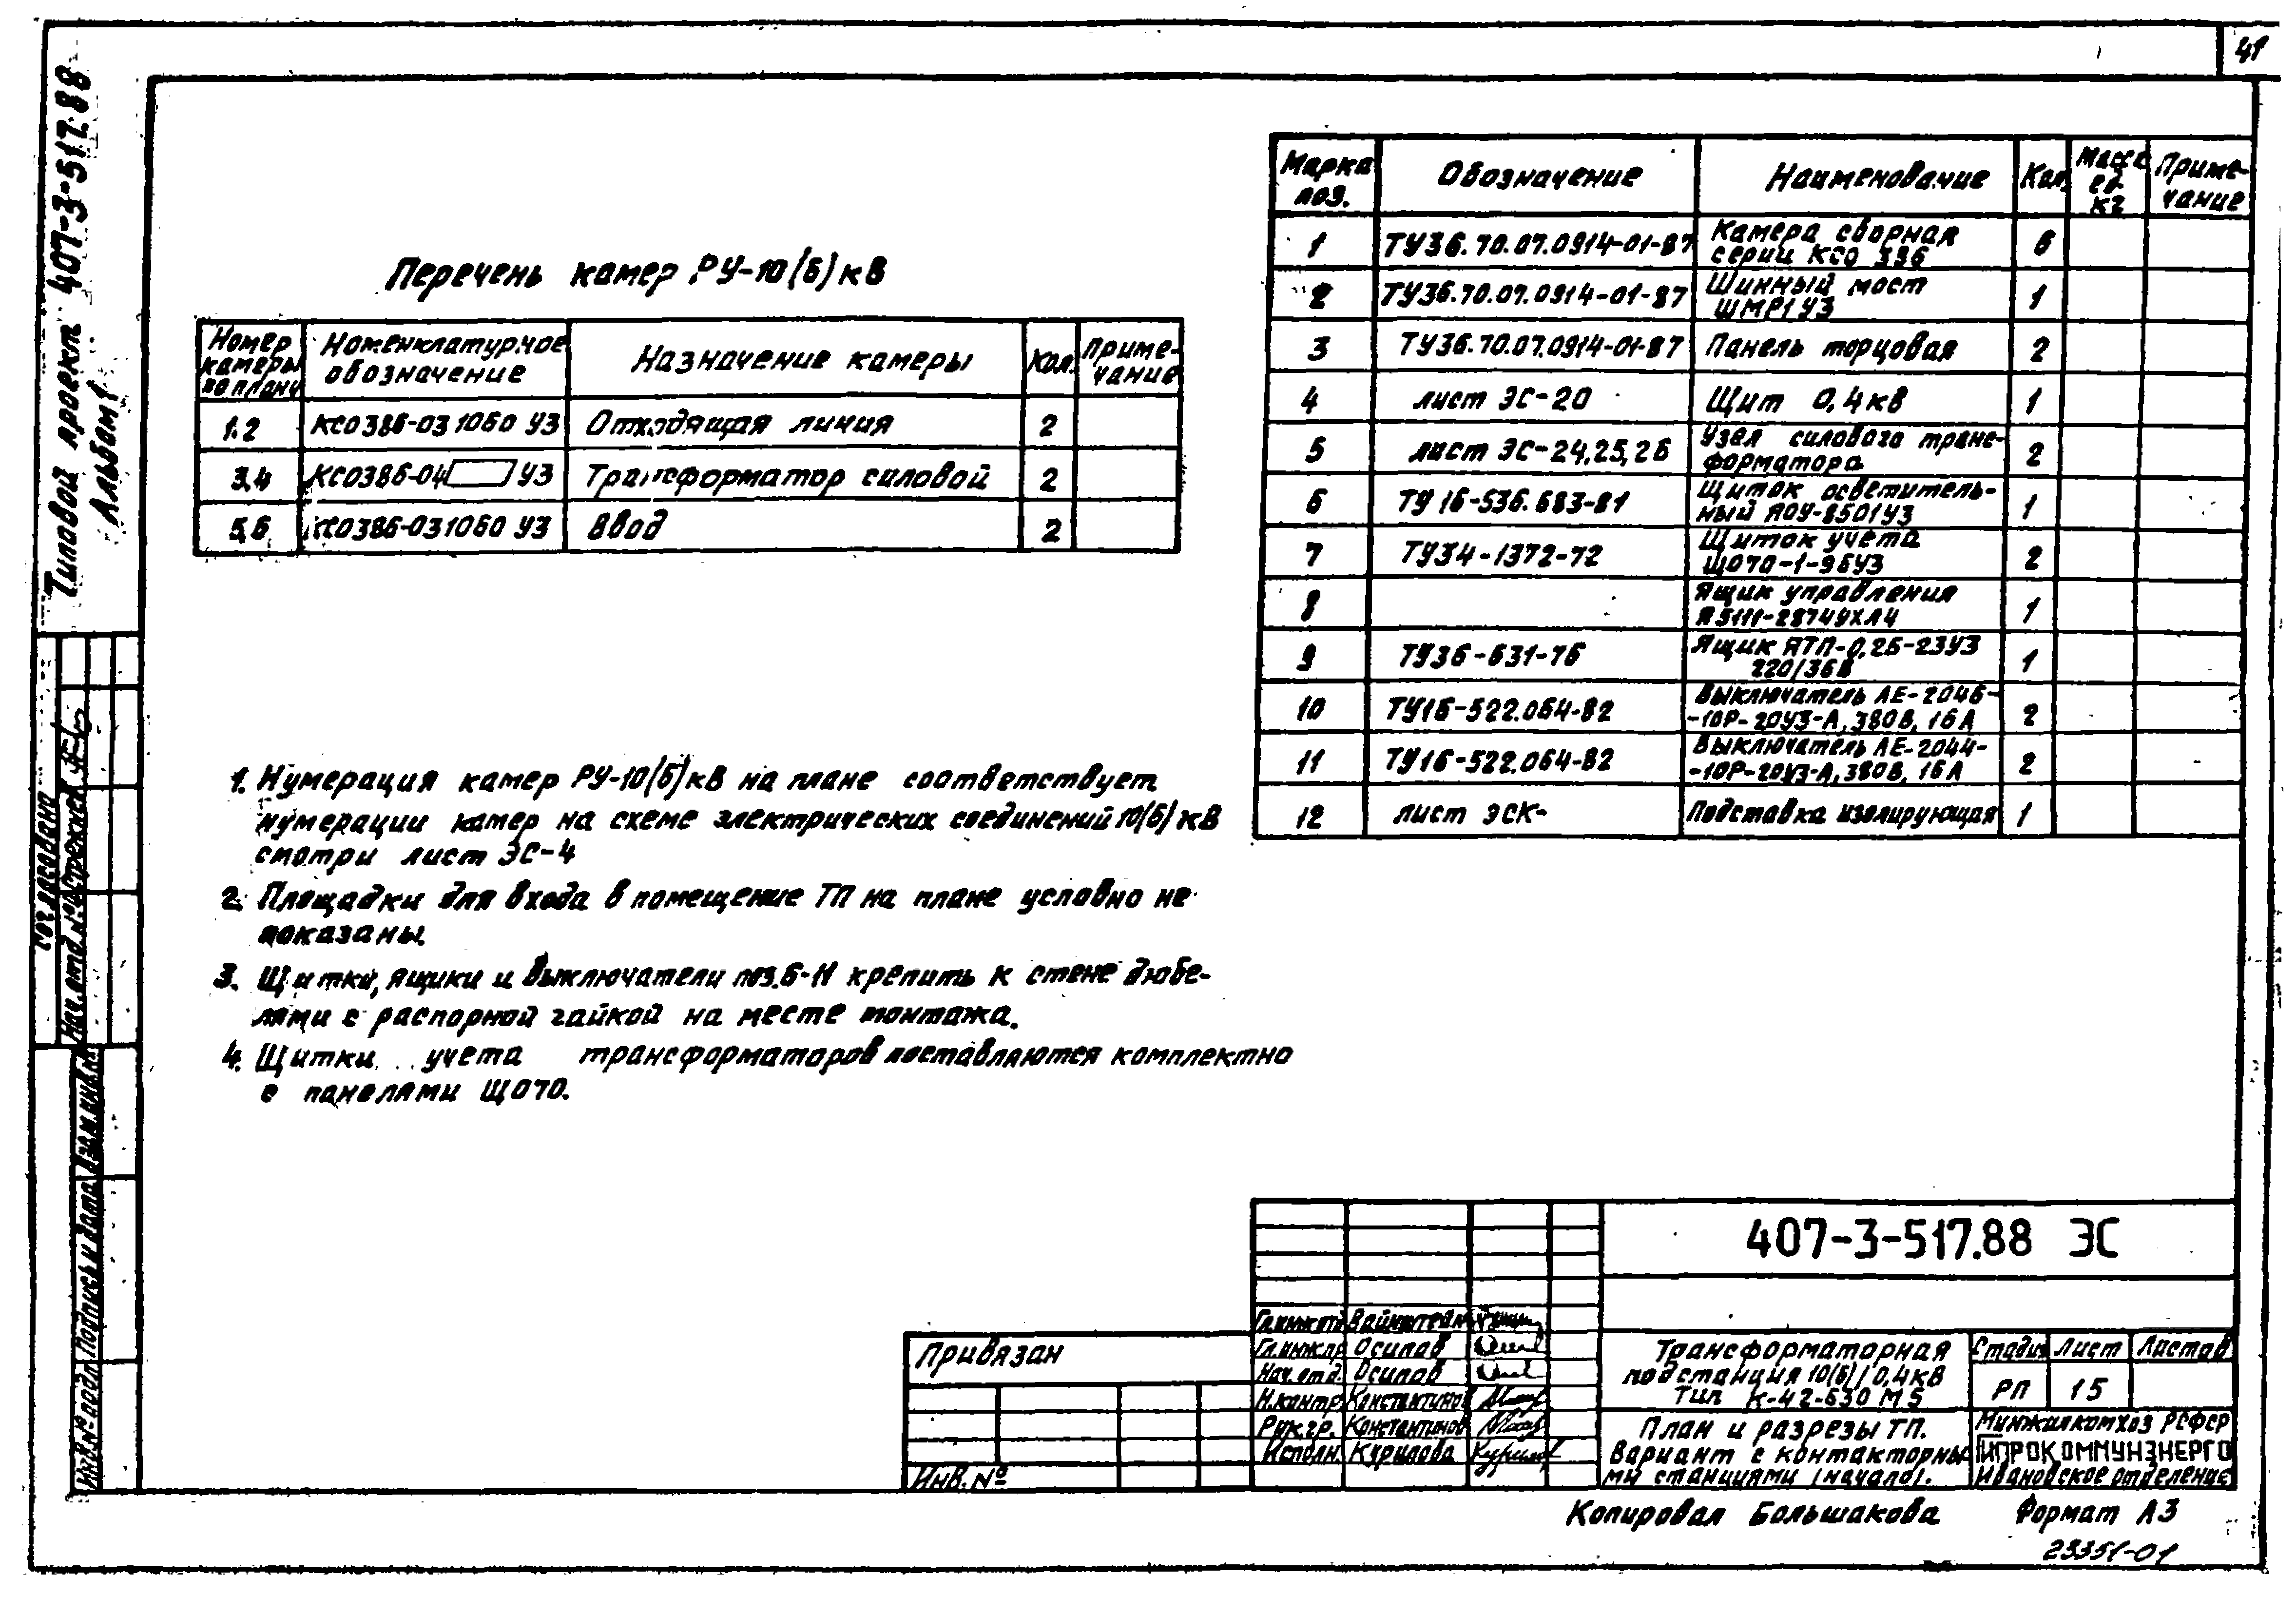 41
Типовой проект 407-3-517.88
Альбом 1
Перечень камер РУ-10(6)кВ
Номер камеры по плану | Номенклатурное обозначение | Назначение камеры | Кол. | Примечание
1.2 | КСО386-03 1060 У3 | Отходящая линия | 2
3,4 | КСО386-04 У3 | Трансформатор силовой | 2
5,6 | КСО386-031060 У3 | Ввод | 2
Марка поз. | Обозначение | Наименование | Кол. | Масса ед. кг | Примечание
1 | ТУ36.70.07.0914-01-87 | Камера сборная серии КСО 386 | 6
2 | ТУ36.70.07.0914-01-87 | Шинный мост ШМР1 У3 | 1
3 | ТУ36.70.07.0914-01-87 | Панель торцовая | 2
4 | лист ЭС-20 | Щит 0,4кВ | 1
5 | лист ЭС-24,25,26 | Узел силового трансформатора | 2
6 | ТУ 16-536.683-81 | Щиток осветительный ЯОУ-8501У3 | 1
7 | ТУ34-1372-72 | Щиток учета ЩО70-1-96У3 | 2
8 | Ящик управления Я5111-2874УХЛ4 | 1
9 | ТУ36-631-76 | Ящик ЯТП-0,25-23У3 220/36В | 1
10 | ТУ16-522.064-82 | Выключатель АЕ-2046-10Р-20У3-А, 380В, 16А | 2
11 | ТУ16-522.064-82 | Выключатель АЕ-2044-10Р-20У3-А, 380В, 16А | 2
12 | лист ЭСК- | Подставка изолирующая | 1
1. Нумерация камер РУ-10(6)кВ на плане соответствует
нумерации камер на схеме электрических соединений 10(6)кВ
смотри лист ЭС-4
2. Площадки для входа в помещение ТП на плане условно не
показаны.
3. Щитки, ящики и выключатели поз.6-11 крепить к стене дюбе-
лями с распорной гайкой на месте монтажа.
4. Щитки учета трансформаторов поставляются комплектно
с панелями ЩО70.
Согласовано
Нач. отд.
Взам. инв. №
Подпись и дата
Инв. № подл.
Привязан
Инв. №
Гл.инж.отд. Вайнштейн
Гл.инж.пр. Осипов
Нач. отд. Осипов
Н.контр. Константинов
Рук.гр. Константинов
Исполн. Курилова
407-3-517.88 ЭС
Трансформаторная
подстанция 10(6)/0,4кВ
Тип К-42-630 М5
Стадия | Лист | Листов
РП | 15
План и разрезы ТП.
Вариант с контакторны-
ми станциями (начало).
Минжилкомхоз РСФСР
ГИПРОКОММУНЭНЕРГО
Ивановское отделение
Копировал Большакова Формат А3
23351-01